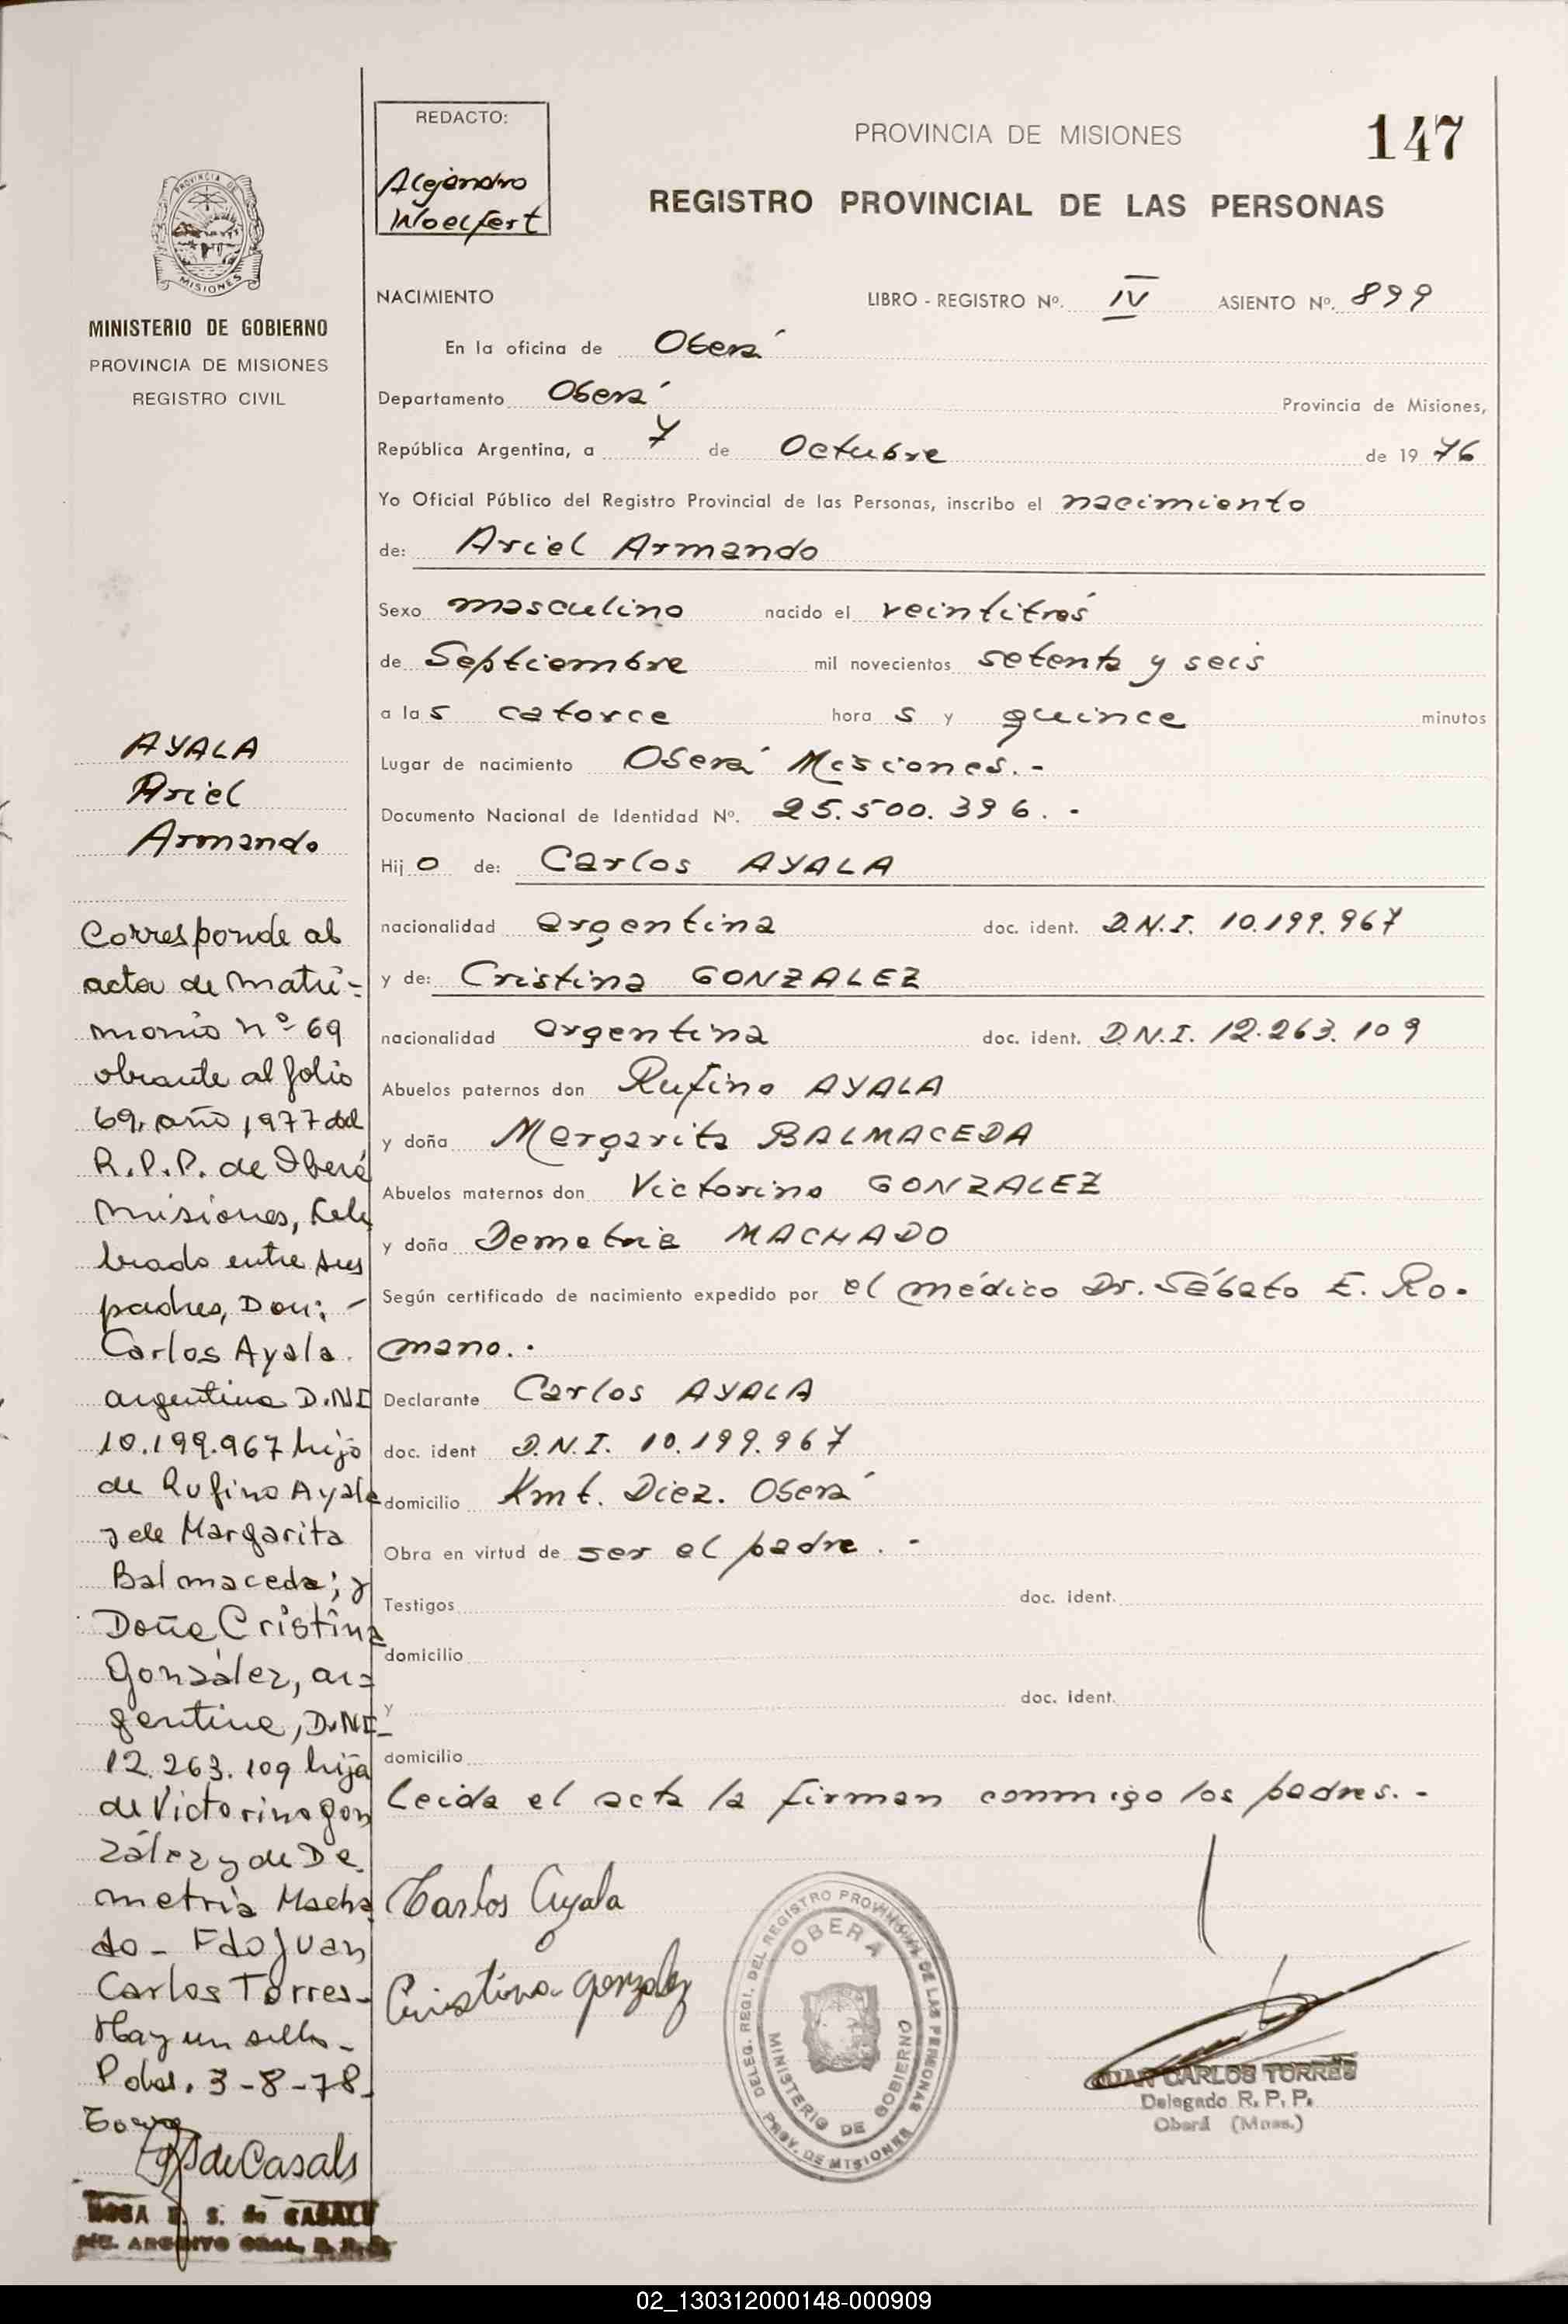 147
REDACTO:
Alejandro
Woelfert
PROVINCIA DE MISIONES
REGISTRO PROVINCIAL DE LAS PERSONAS
PROVINCIA DE
MISIONES
MINISTERIO DE GOBIERNO
PROVINCIA DE MISIONES
REGISTRO CIVIL
NACIMIENTO LIBRO - REGISTRO Nº. IV ASIENTO Nº. 899
En la oficina de Oberá
Departamento Oberá Provincia de Misiones,
República Argentina, a 7 de Octubre de 1976
Yo Oficial Público del Registro Provincial de las Personas, inscribo el nacimiento
de: Ariel Armando
Sexo masculino nacido el veintitrés
de Septiembre mil novecientos setenta y seis
a las catorce horas y quince minutos
Lugar de nacimiento Oberá Misiones.-
Documento Nacional de Identidad Nº. 25.500.396.-
Hijo de: Carlos AYALA
nacionalidad argentina doc. ident. D.N.I. 10.199.967
y de: Cristina GONZALEZ
nacionalidad argentina doc. ident. D.N.I. 12.263.109
Abuelos paternos don Rufino AYALA
y doña Margarita BALMACEDA
Abuelos maternos don Victorino GONZALEZ
y doña Demetria MACHADO
Según certificado de nacimiento expedido por el médico Dr. Sábato E. Ro-
mano.-
Declarante Carlos AYALA
doc. ident D.N.I. 10.199.967
domicilio Kmt. Diez. Oberá
Obra en virtud de ser el padre.-
Testigos doc. ident.
domicilio
y doc. ident.
domicilio
Leida el acta la firman conmigo los padres.-
Carlos Ayala
Cristina Gonzalez
DELEG. REGI. DEL REGISTRO PROVINCIAL DE LAS PERSONAS
OBERA
MINISTERIO DE GOBIERNO
PROV. DE MISIONES
JUAN CARLOS TORRES
Delegado R. P. P.
Oberá (Mnes.)
AYALA
Ariel
Armando
Corresponde al
acta de matri-
monio nº 69
obrante al folio
69, año 1977 del
R.P.P. de Oberá
Misiones, Cele
brado entre sus
padres, Don: -
Carlos Ayala.
argentino D.NI
10.199.967 hijo
de Rufino Ayala
y de Margarita
Balmaceda; y
Doña Cristina
González, ar=
gentina, D.NI-
12.263.109 hija
de Victorino Gon
zález y de De
metria Macha
do - Fdo Juan
Carlos Torres-
Hay un sello-
Pdas. 3-8-78-
de Casals
ROSA E. S. de CASALS
ARCHIVO GRAL. R. P. P.
02_130312000148-000909